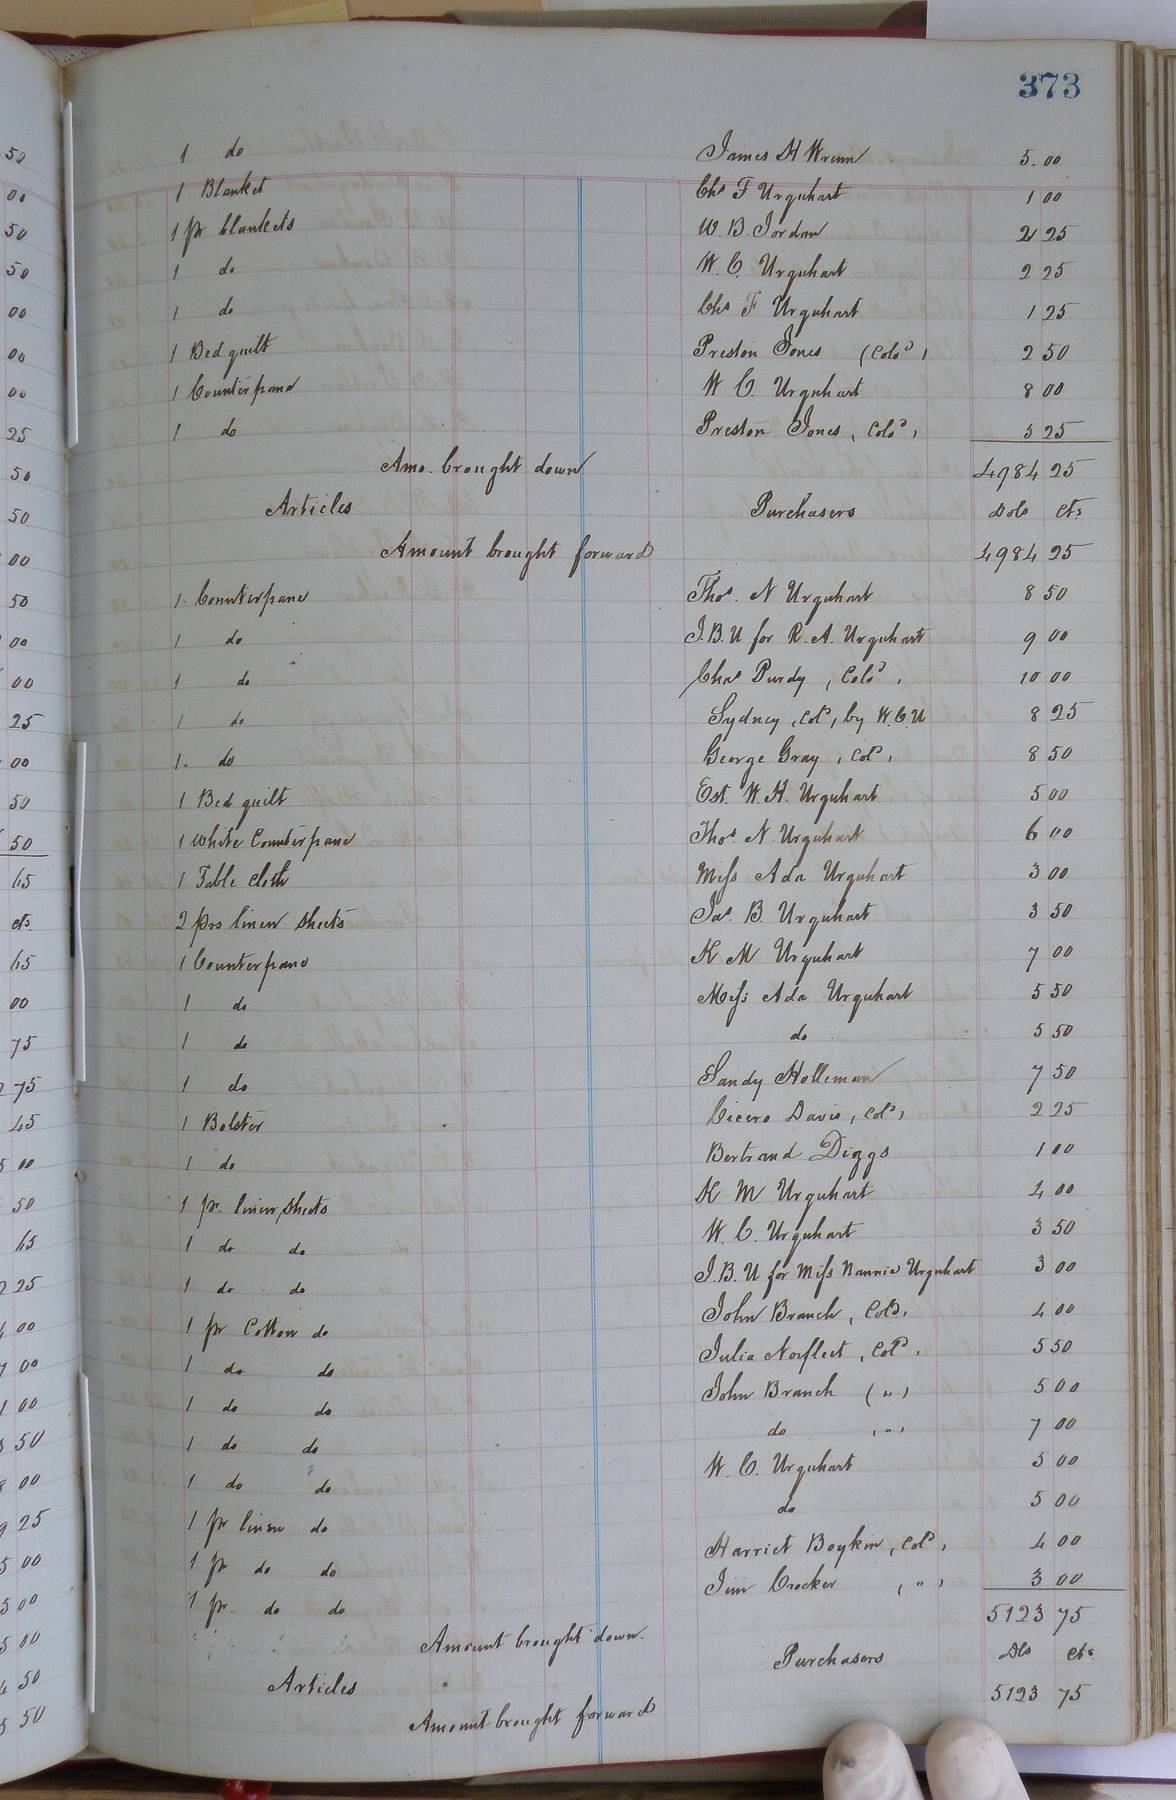 373
1 do James H Wrenn 5.00
1 Blanket Chs F Urquhart 1 00
1 pr blankets W. B. Jordan 2 25
1 do W. C. Urquhart 2 25
1 do Chs F Urquhart 1 25
1 Bed quilt Preston Jones (Cold) 2 50
1 Counterpane W. C. Urquhart 8 00
1 do Preston Jones, Cold, 5 25
Amo. brought down 4984 25
Articles Purchasers Dols Cts
Amount brought forward 4984 25
1. Counterpane Thos. N Urquhart 8 50
1 do J. B. U for R. A. Urquhart 9 00
1 do Chas Purdy, Cold, 10 00
1 do Sydney, Cold, by W. C. U 8 25
1. do George Gray, Cold, 8 50
1 Bed quilt Est. W. H. Urquhart 5 00
1 White Counterpane Thos. N Urquhart 6 00
1 Table Cloth Miss Ada Urquhart 3 00
2 prs linen sheets Jas. B. Urquhart 3 50
1 Counterpane K M Urquhart 7 00
1 do Miss Ada Urquhart 5 50
1 do do 5 50
1 do Sandy Holleman 7 50
1 Bolster Cicero Davis, Cold, 2 25
1 do Bertrand Diggs 1 00
1 pr. linen sheets K M Urquhart 4 00
1 do do W. C. Urquhart 3 50
1 do do J. B. U for Miss Nannie Urquhart 3 00
1 pr Cotton do John Branch, Cold, 4 00
1 do do Julia Norfleet, Cold, 5 50
1 do do John Branch (") 5 00
1 do do do (") 7 00
1 do do W. C. Urquhart 5 00
1 pr linen do do 5 00
1 pr do do Harriet Boykin, Cold, 4 00
1 pr. do do Jim Crocker (") 3 00
Amount brought down. 5123 75
Articles Purchasers Dls Cts
Amount brought forward 5123 75